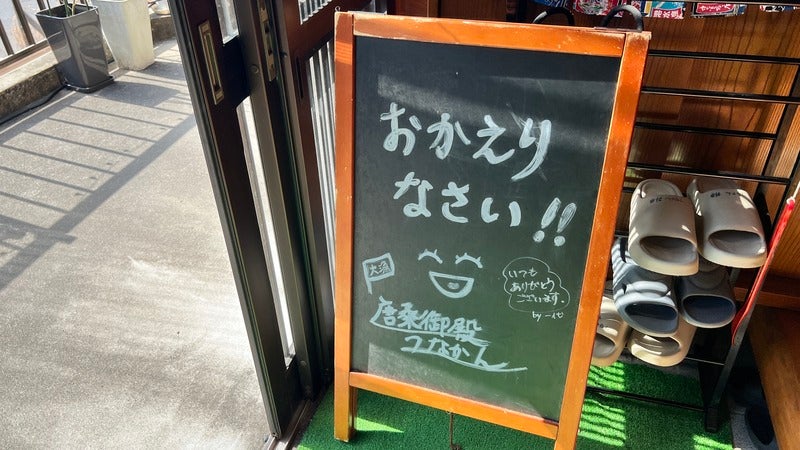 おかえり
なさい!!
大漁
いつも
ありがとう
ございます。
by 一代
唐桑御殿
つなかん